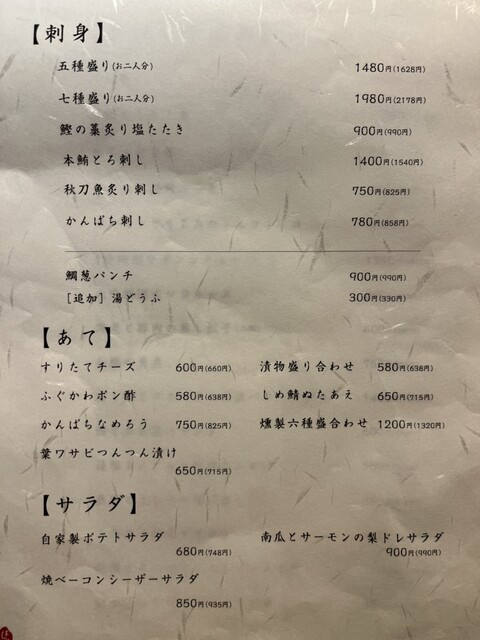 【刺身】
五種盛り(お二人分) 1480円(1628円)
七種盛り(お二人分) 1980円(2178円)
鰹の藁炙り塩たたき 900円(990円)
本鮪とろ刺し 1400円(1540円)
秋刀魚炙り刺し 750円(825円)
かんぱち刺し 780円(858円)
鯛葱パンチ 900円(990円)
［追加］湯どうふ 300円(330円)
【あて】
すりたてチーズ 600円(660円) 漬物盛り合わせ 580円(638円)
ふぐかわポン酢 580円(638円) しめ鯖ぬたあえ 650円(715円)
かんぱちなめろう 750円(825円) 燻製六種盛合わせ 1200円(1320円)
葉ワサビつんつん漬け
650円(715円)
【サラダ】
自家製ポテトサラダ 南瓜とサーモンの梨ドレサラダ
680円(748円) 900円(990円)
焼ベーコンシーザーサラダ
850円(935円)